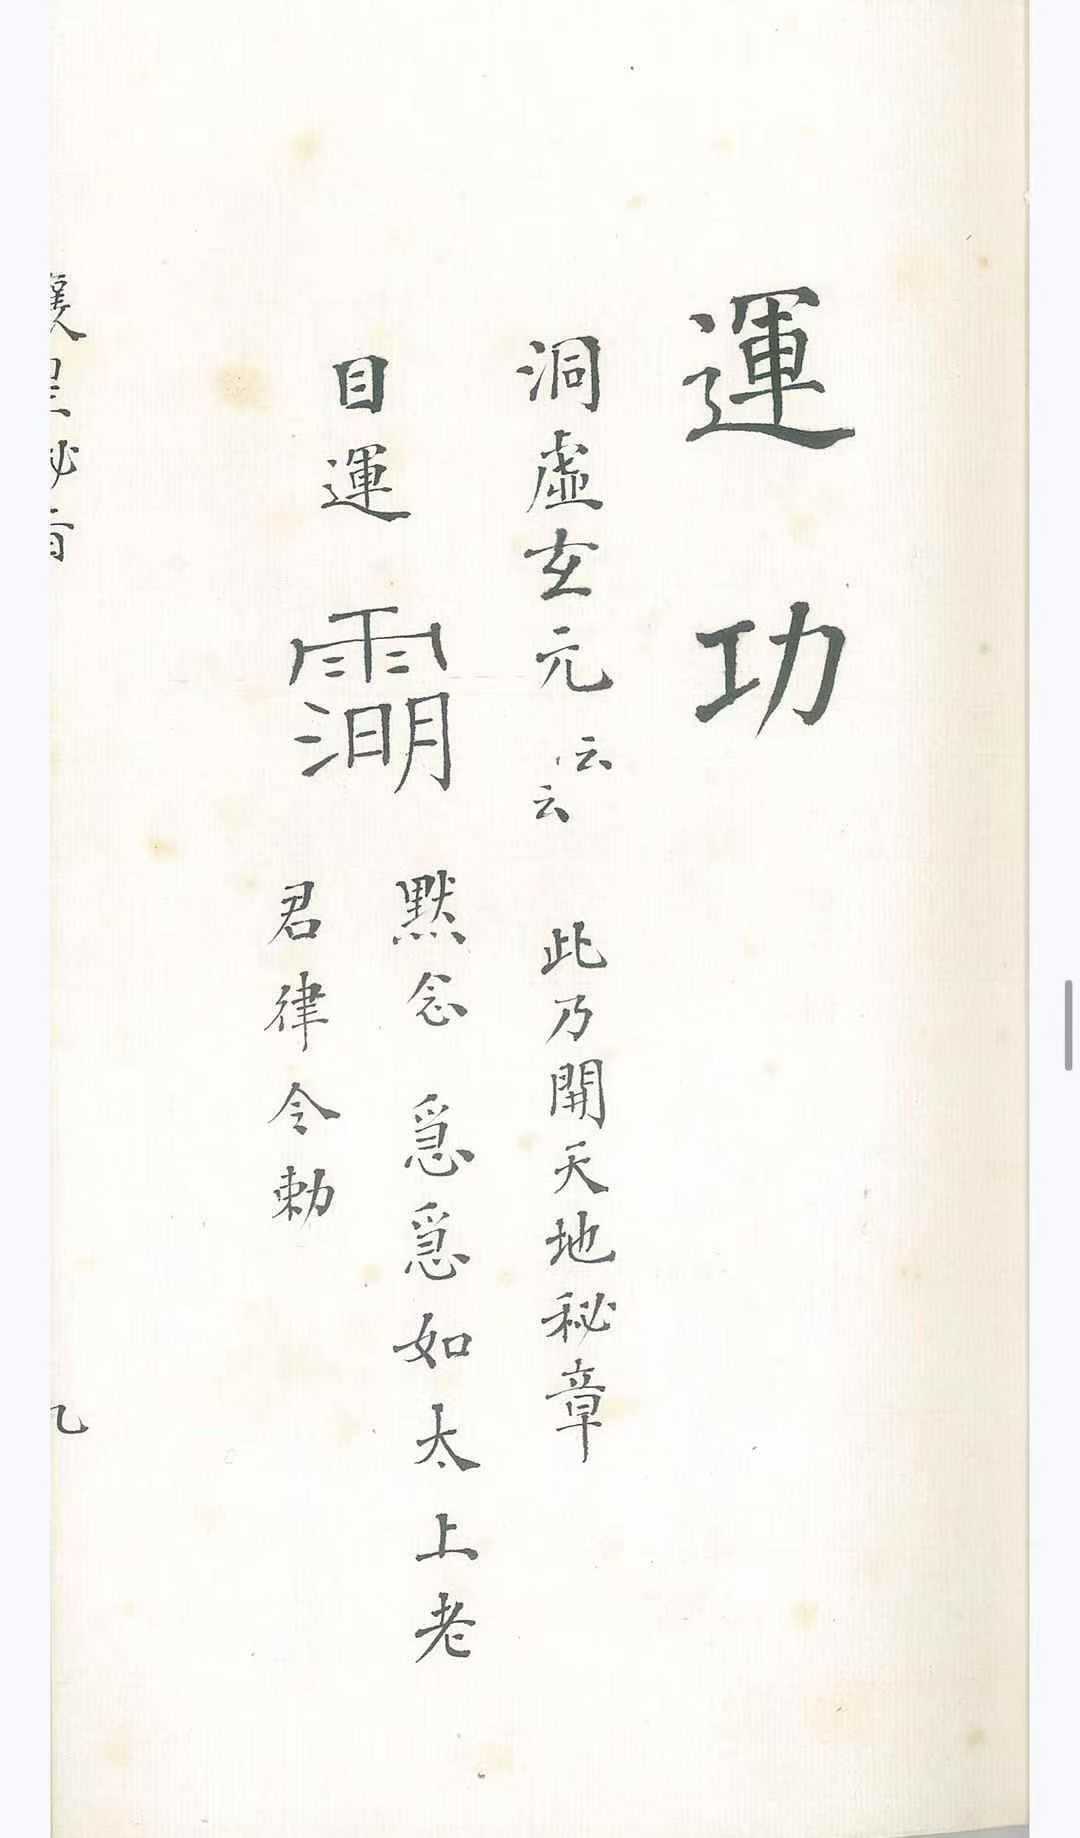 運功
洞虛玄元云云 此乃開天地秘章
目運 默念 急急如太上老
君律令勅
秘旨
九